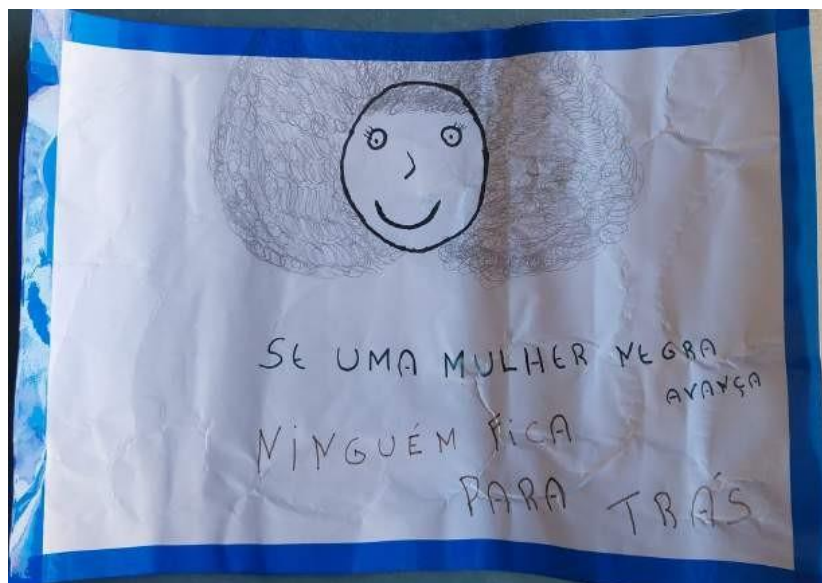 SE UMA MULHER NEGRA
AVANÇA
NINGUÉM FICA
PARA TRÁS